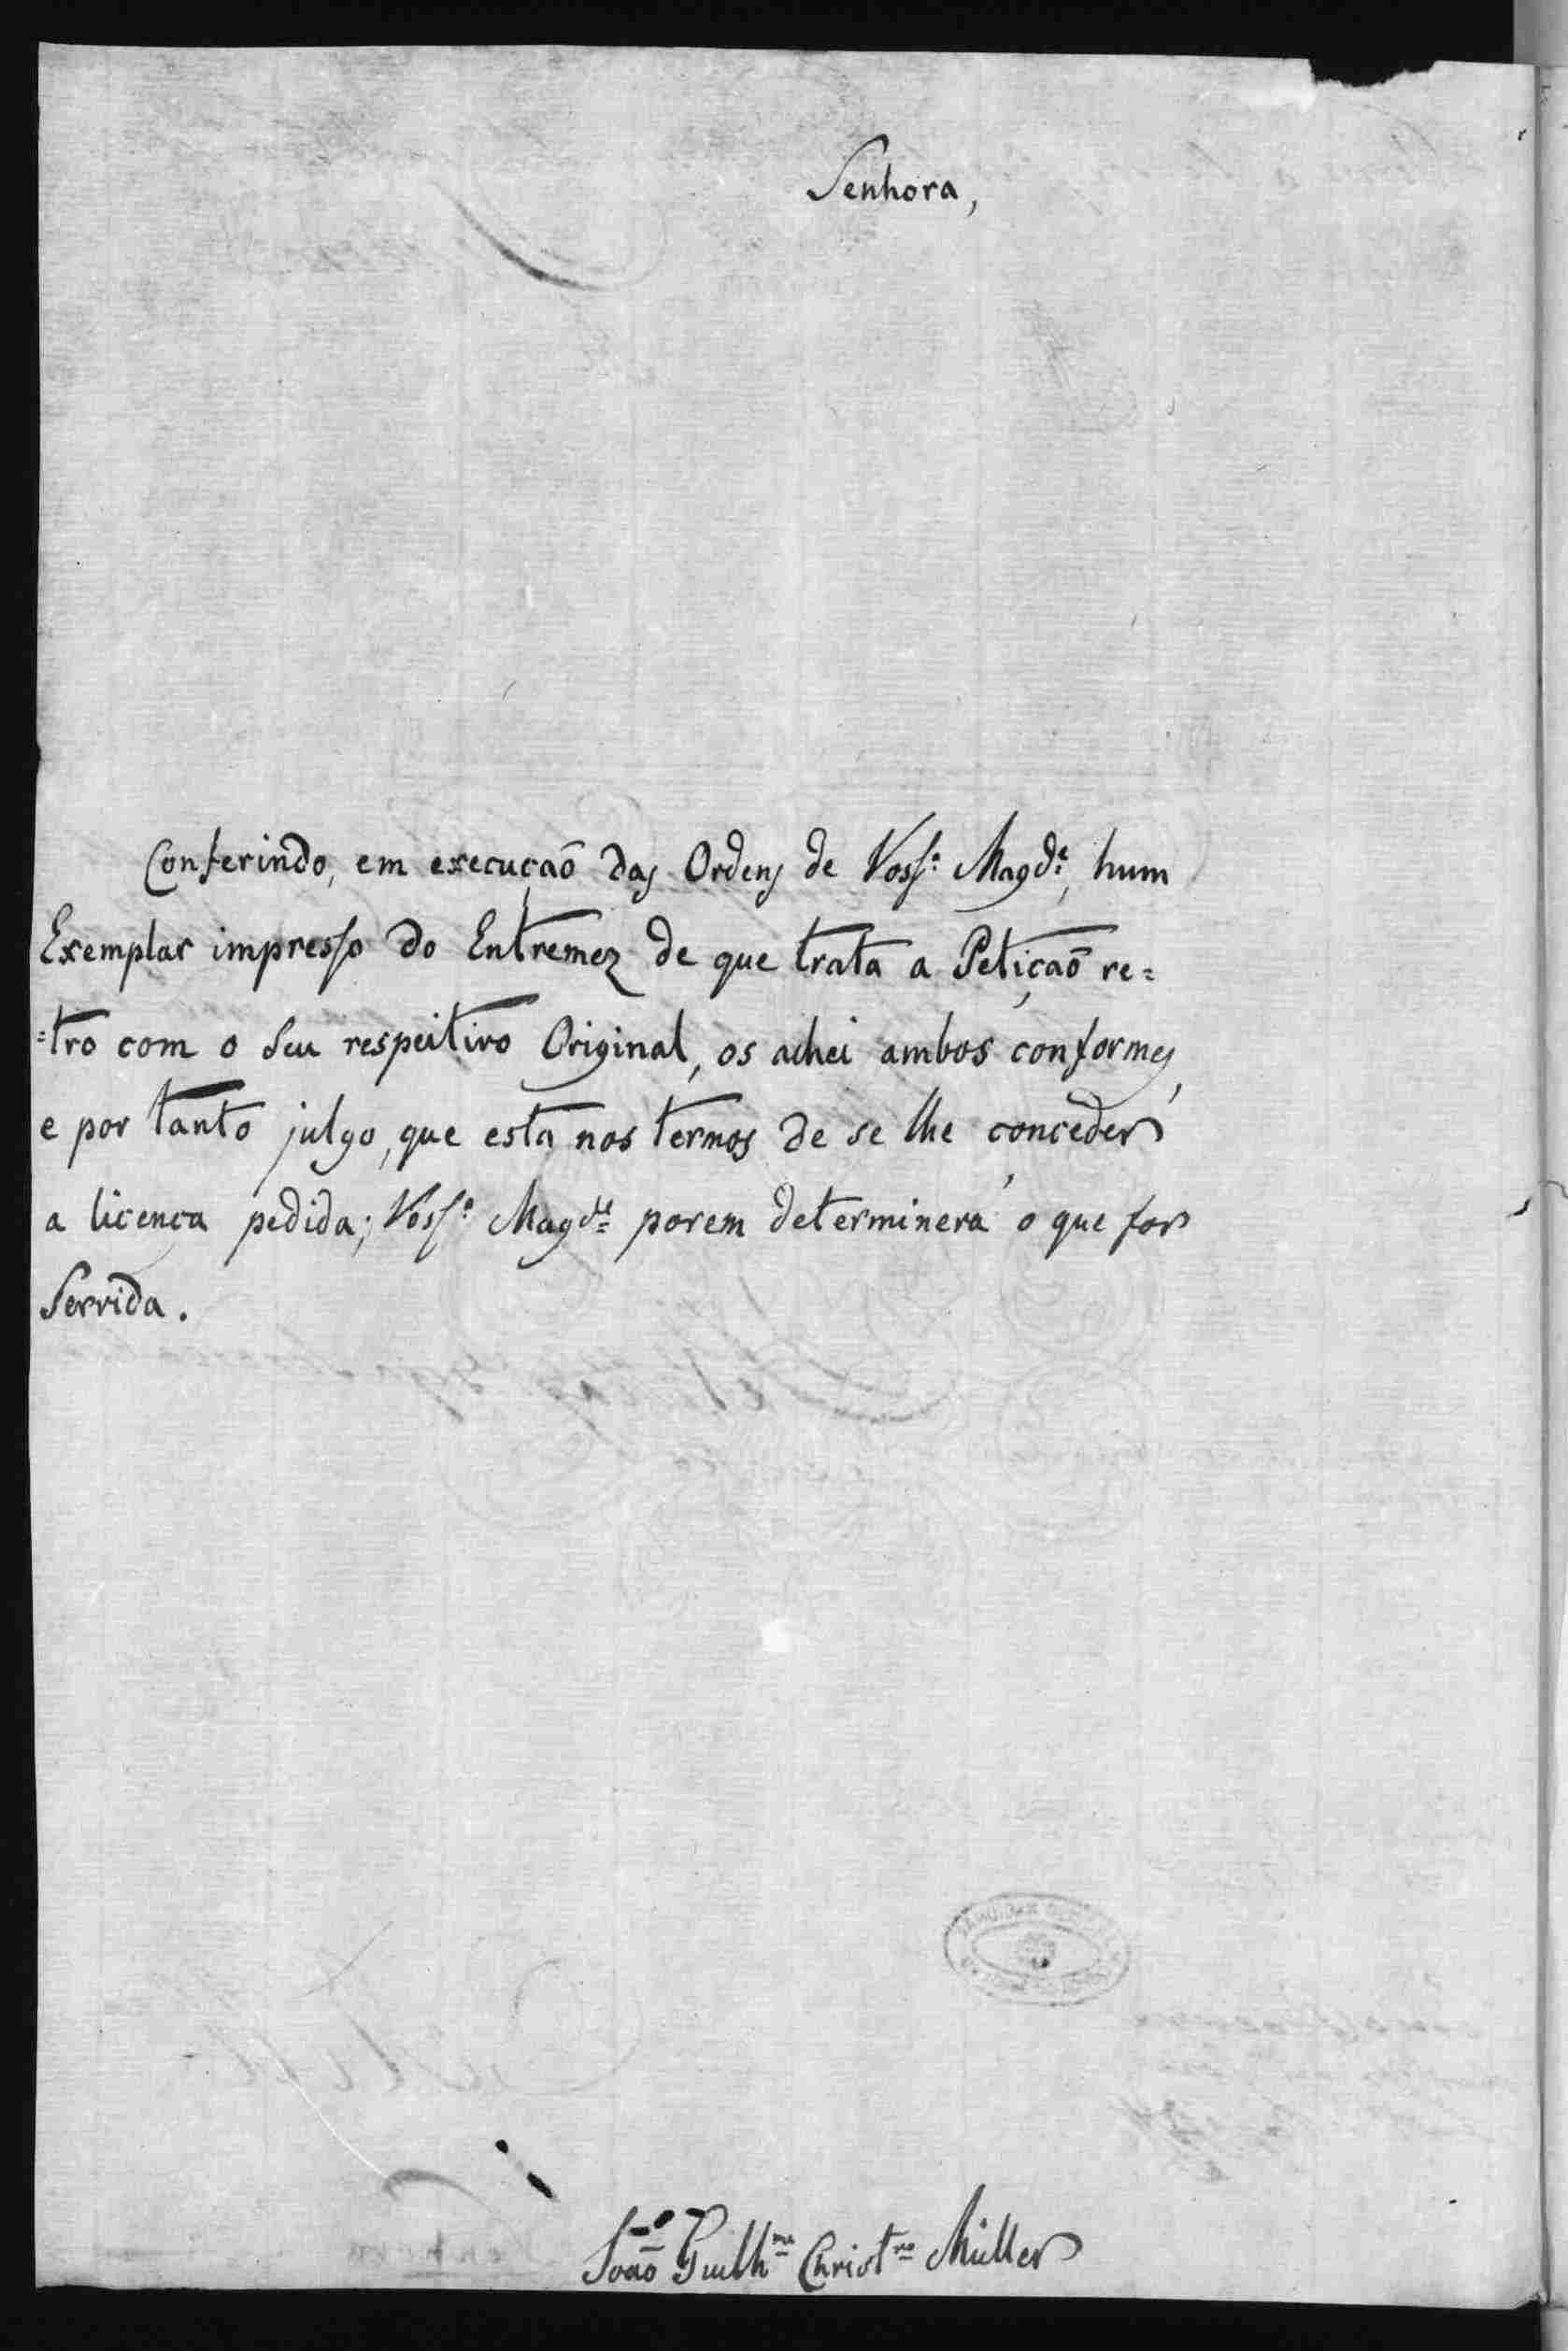 Senhora,
Conferindo, em execuçaõ das Ordens de Voss.ª Magd.ᵉ, hum
Exemplar impresso do Entremez de que trata a Petiçaõ re=
=tro com o seu respeitivo Original, os achei ambos conformes,
e por tanto julgo, que está nos termos de se lhe conceder
a licença pedida; Voss.ª Magd.ᵉ porem determinerá o que for
Servida.
Joaõ Guilh.ᵐᵉ Christ.ⁿᵒ Müller